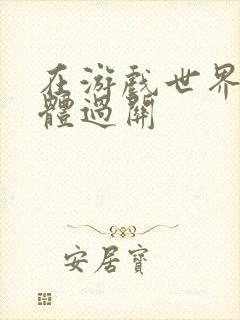 在游戲世界
體過關
安居寶